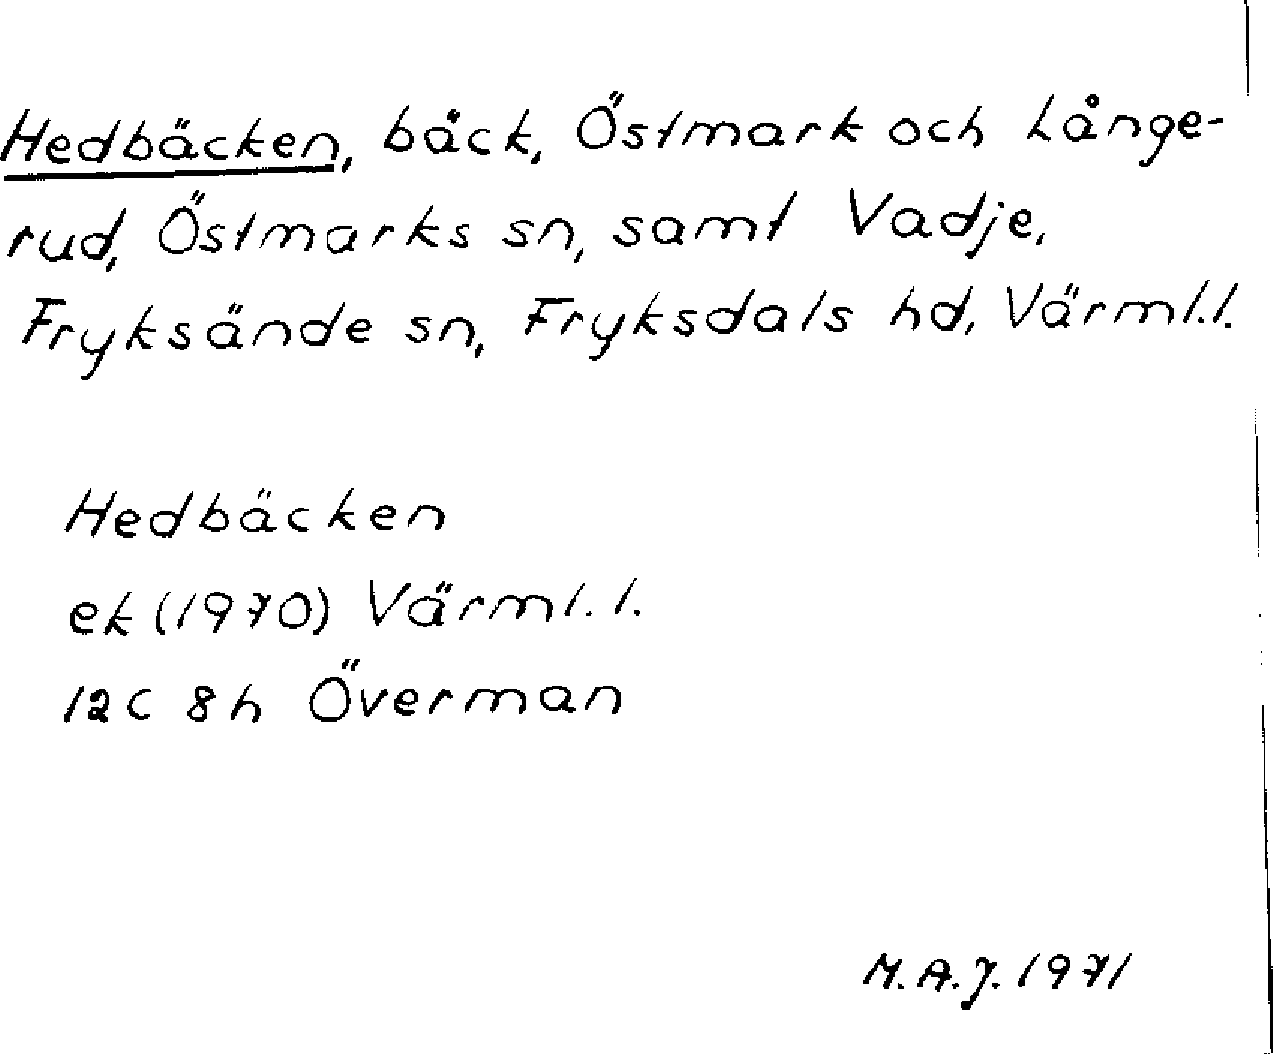 Hedbäcken, bäck, Östmark och Långe-
rud, Östmarks sn, samt Vadje,
Fryksände sn, Fryksdals hd, Värml.l.
Hedbäcken
ek (1970) Värml.l.
12C 8h Överman
M.A.J. 1971